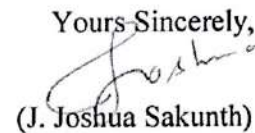 Yours Sincerely,
Joshua
(J. Joshua Sakunth)